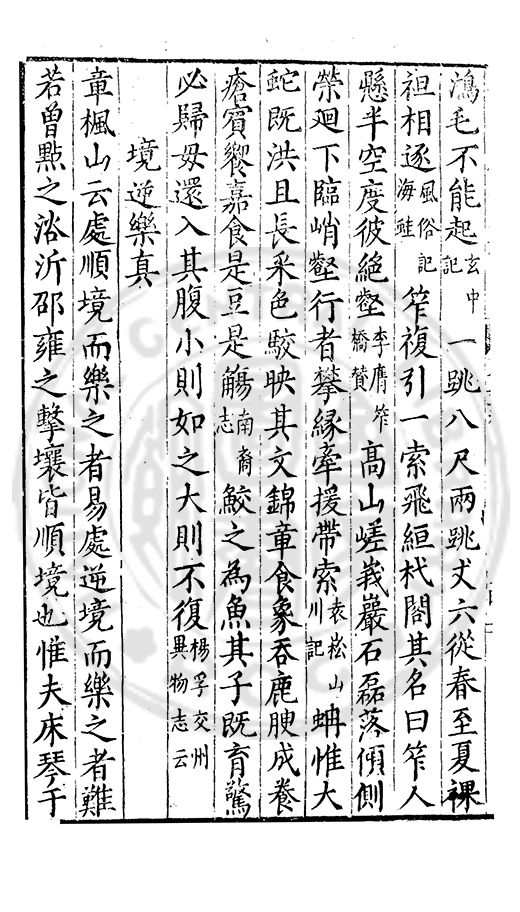 鴻毛不能起玄中記一跳八尺兩跳丈六從春至夏裸
袒相逐風俗記海䵷笮複引一索飛絙杙閣其名曰笮人
懸半空度彼絶壑李膺笮橋贊高山嵯峩巖石磊落傾側
縈廻下臨峭壑行者攀緣牽援帶索袁崧山川記蚺惟大
蛇既洪且長采色駮映其文錦章食象吞鹿腴成養
瘡賓饗嘉食是豆是觴南裔志鮫之為魚其子既育驚
必歸母還入其腹小則如之大則不復楊孚交州異物志云
境逆樂真
章楓山云處順境而樂之者易處逆境而樂之者難
若曾點之浴沂邵雍之擊壤皆順境也惟夫床琴于